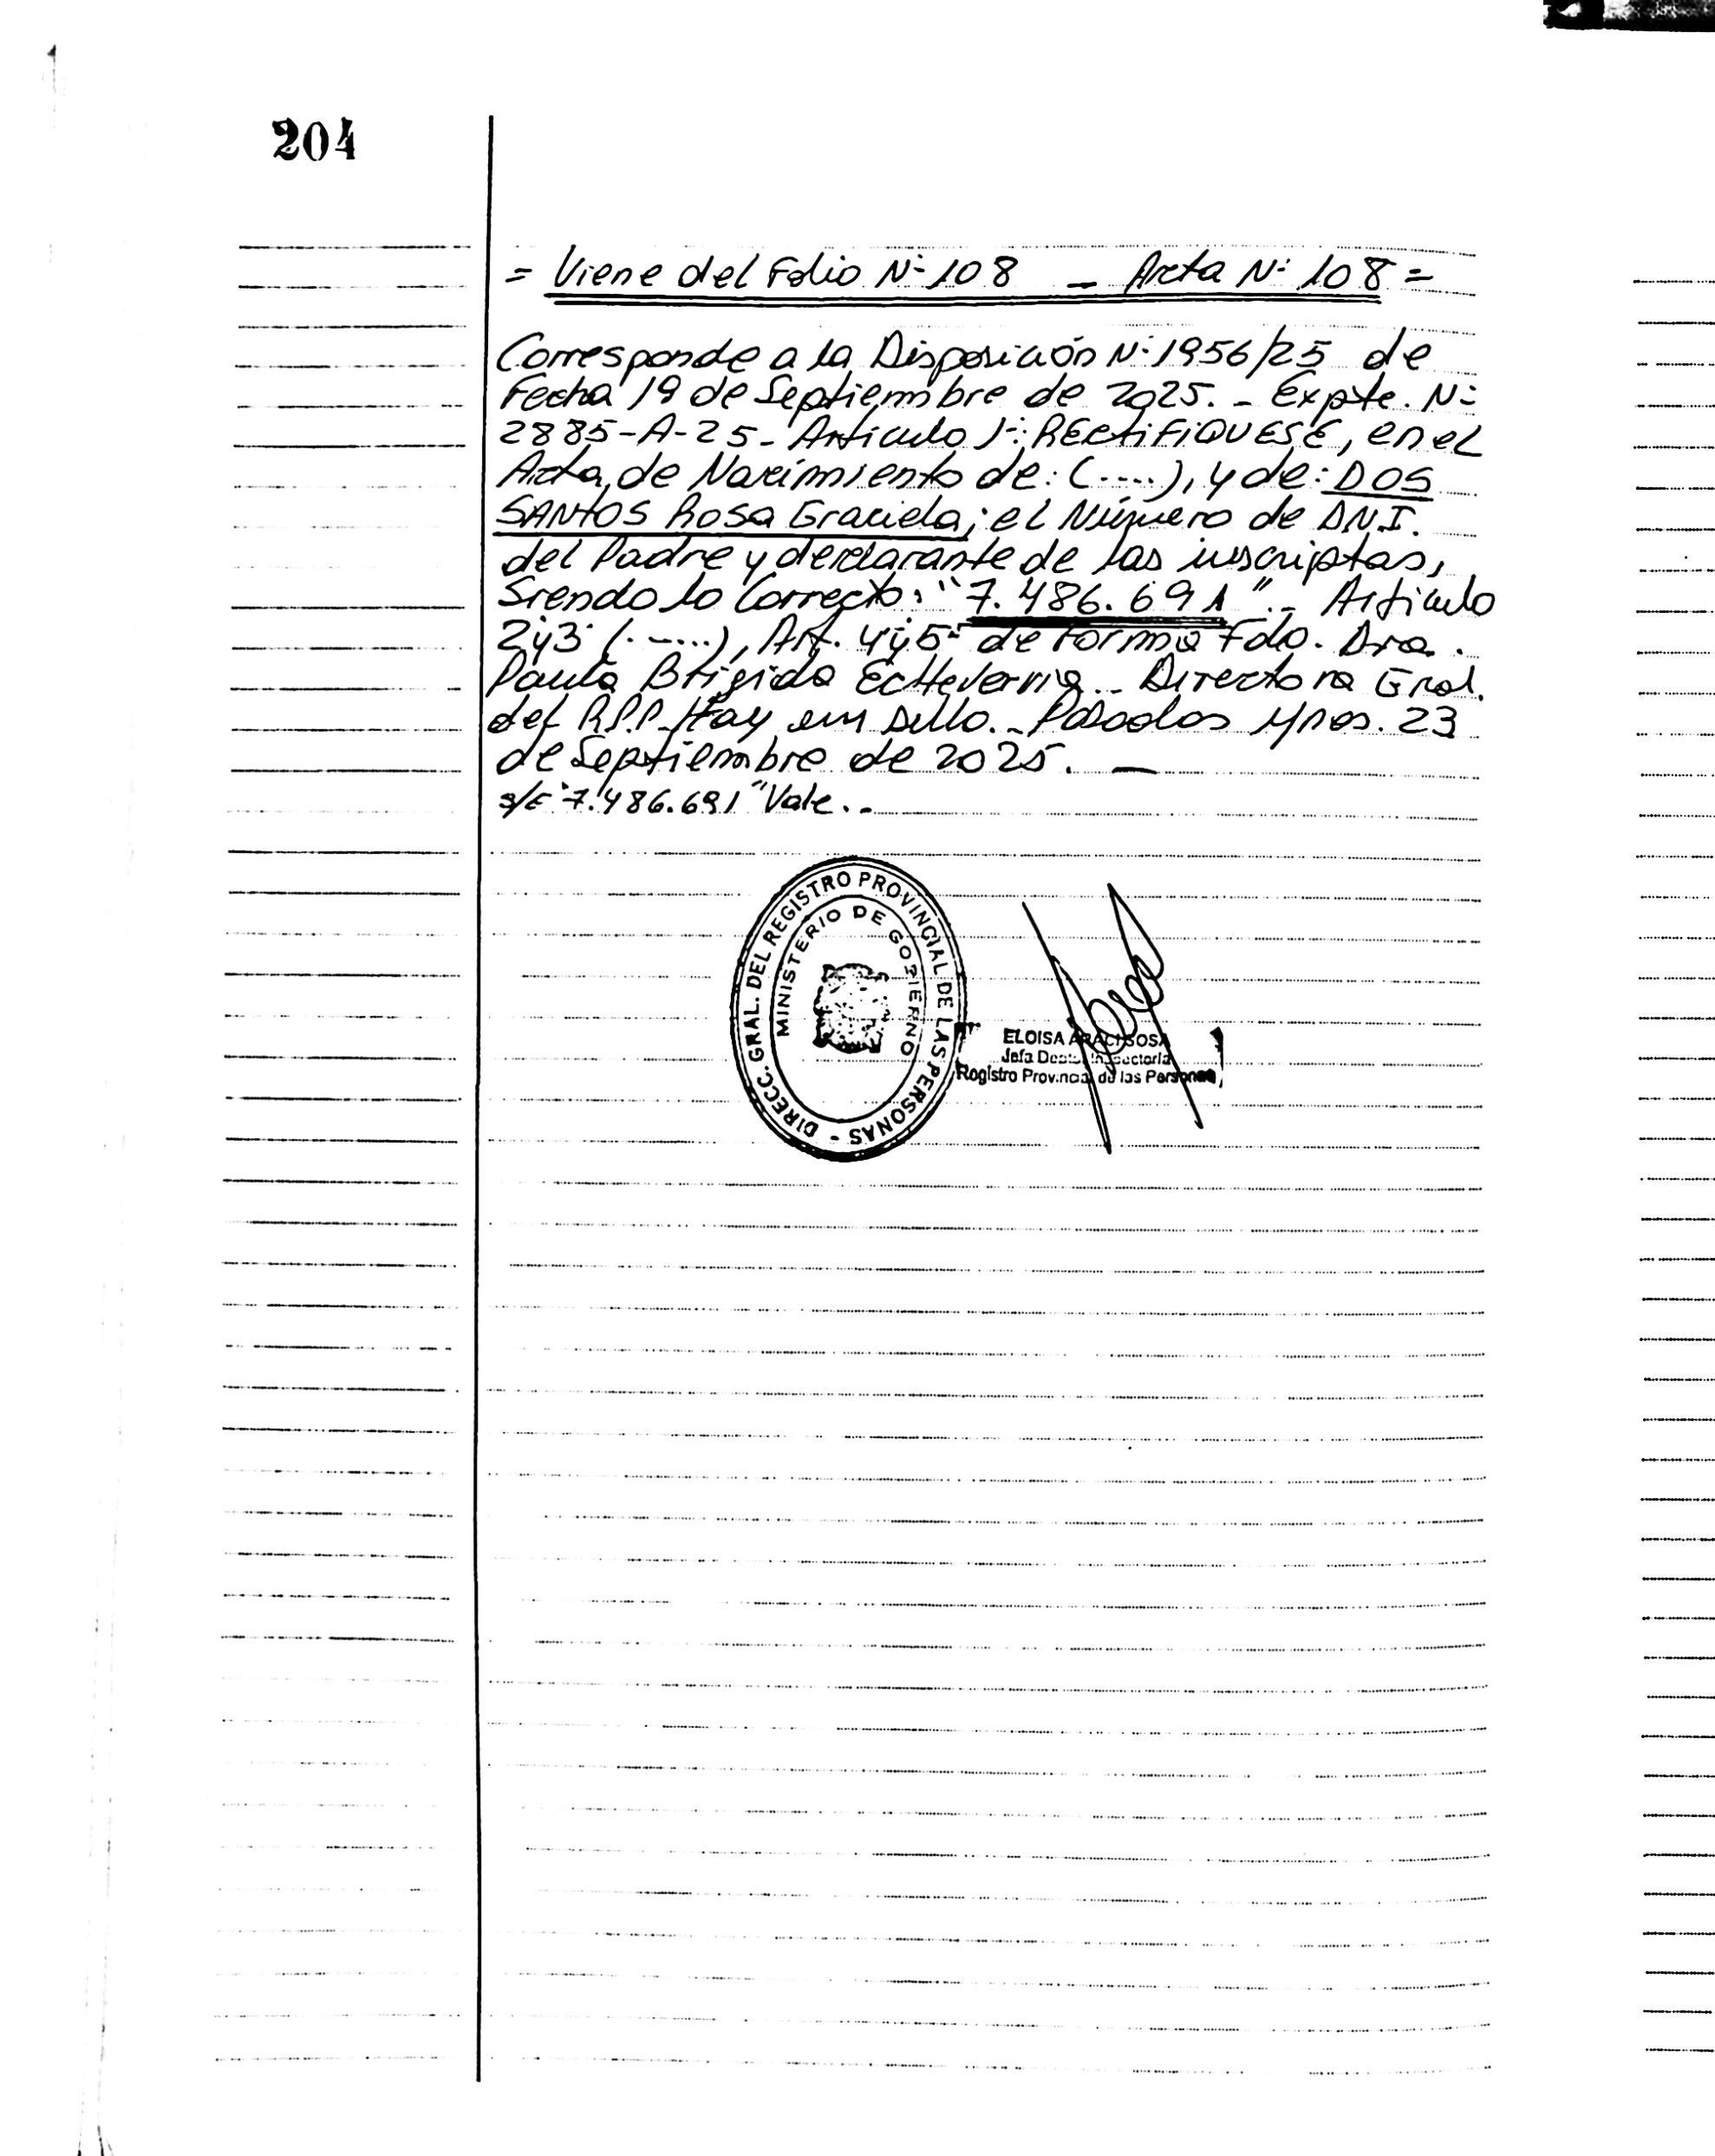 204
= Viene del Folio Nº 108 - Acta Nº 108 =
Corresponde a la Disposición Nº 1956/25 de
Fecha 19 de Septiembre de 2025. - Expte. Nº
2885-A-25- Artículo 1º: RECTIFIQUESE, en el
Acta, de Nacimiento de: (....), y de: DOS
SANTOS Rosa Graciela; el Número de D.N.I.
del Padre y declarante de las inscriptas,
Siendo lo Correcto: "7.486.691".- Artículo
2y3 (.-....), Art. 4y5º de Forma Fdo. Dra.
Paula Brigida Echeverria.. Directora Gral.
del R.P.P. Hay un sello.- Posadas Mnes. 23
de Septiembre de 2025. —
s/E "7.486.691" Vale..
DIRECC. GRAL. DEL REGISTRO PROVINCIAL DE LAS PERSONAS -
MINISTERIO DE GOBIERNO
ELOISA ARACI SOSA
Jefa Dpto. Inspectoria
Registro Provincial de las Personas